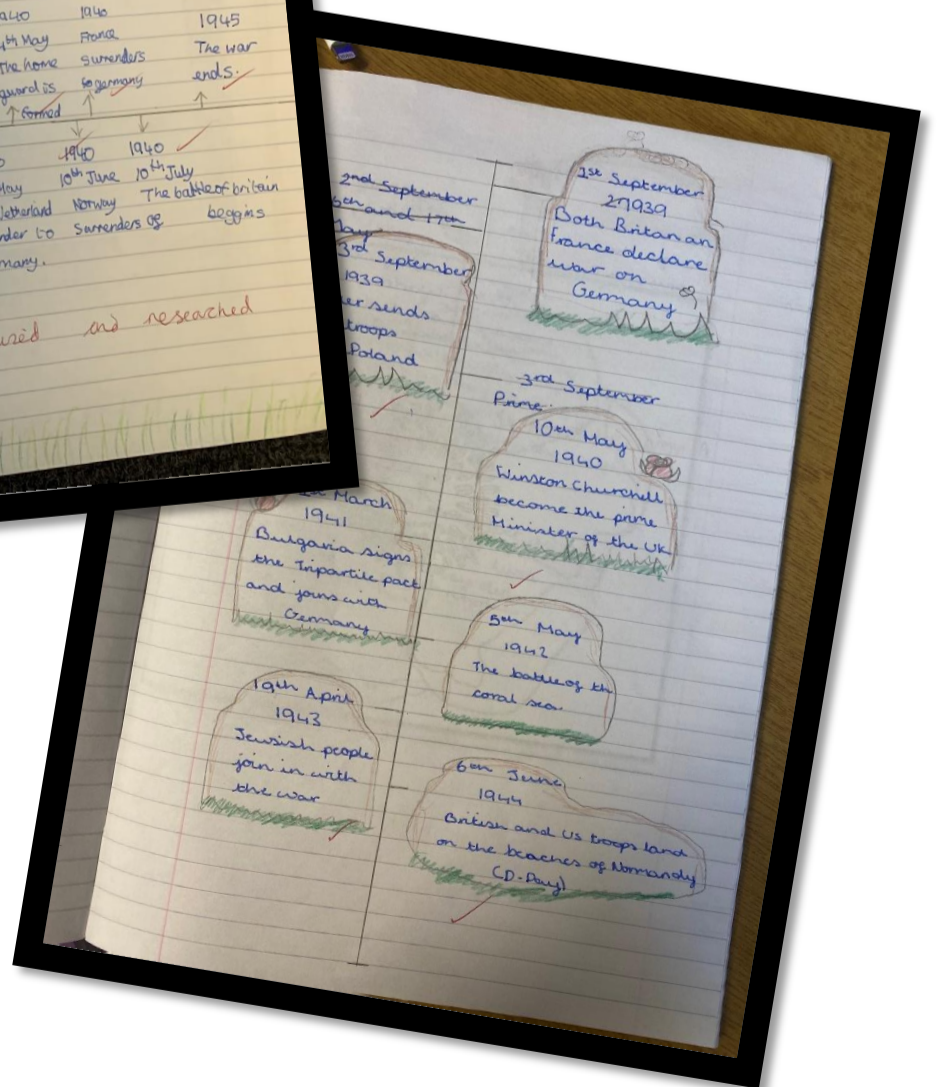 1940
May
The home
guard is
formed
1940
France
surrenders
Germany
1945
The war
ends.
1940
10th June
Norway
Surrenders
1940
10th July
The battle of britain
beggins
to
many.
and researched
2nd September
and 17th
3rd September
1939
sends
troops
Poland
1st September
1939
Both Britan an
France declare
war on
Germany
3rd September
Prime
10th May
1940
Winston Churchill
become the prime
Minister of the UK
March
1941
Bulgaria signs
the Tripartile pact
and joins with
Germany
5th May
1942
The battle of th
coral sea
19th April
1943
Jewsish people
join in with
the war
6th June
1944
British and US troops land
on the beaches of Normandy
(D-Day)